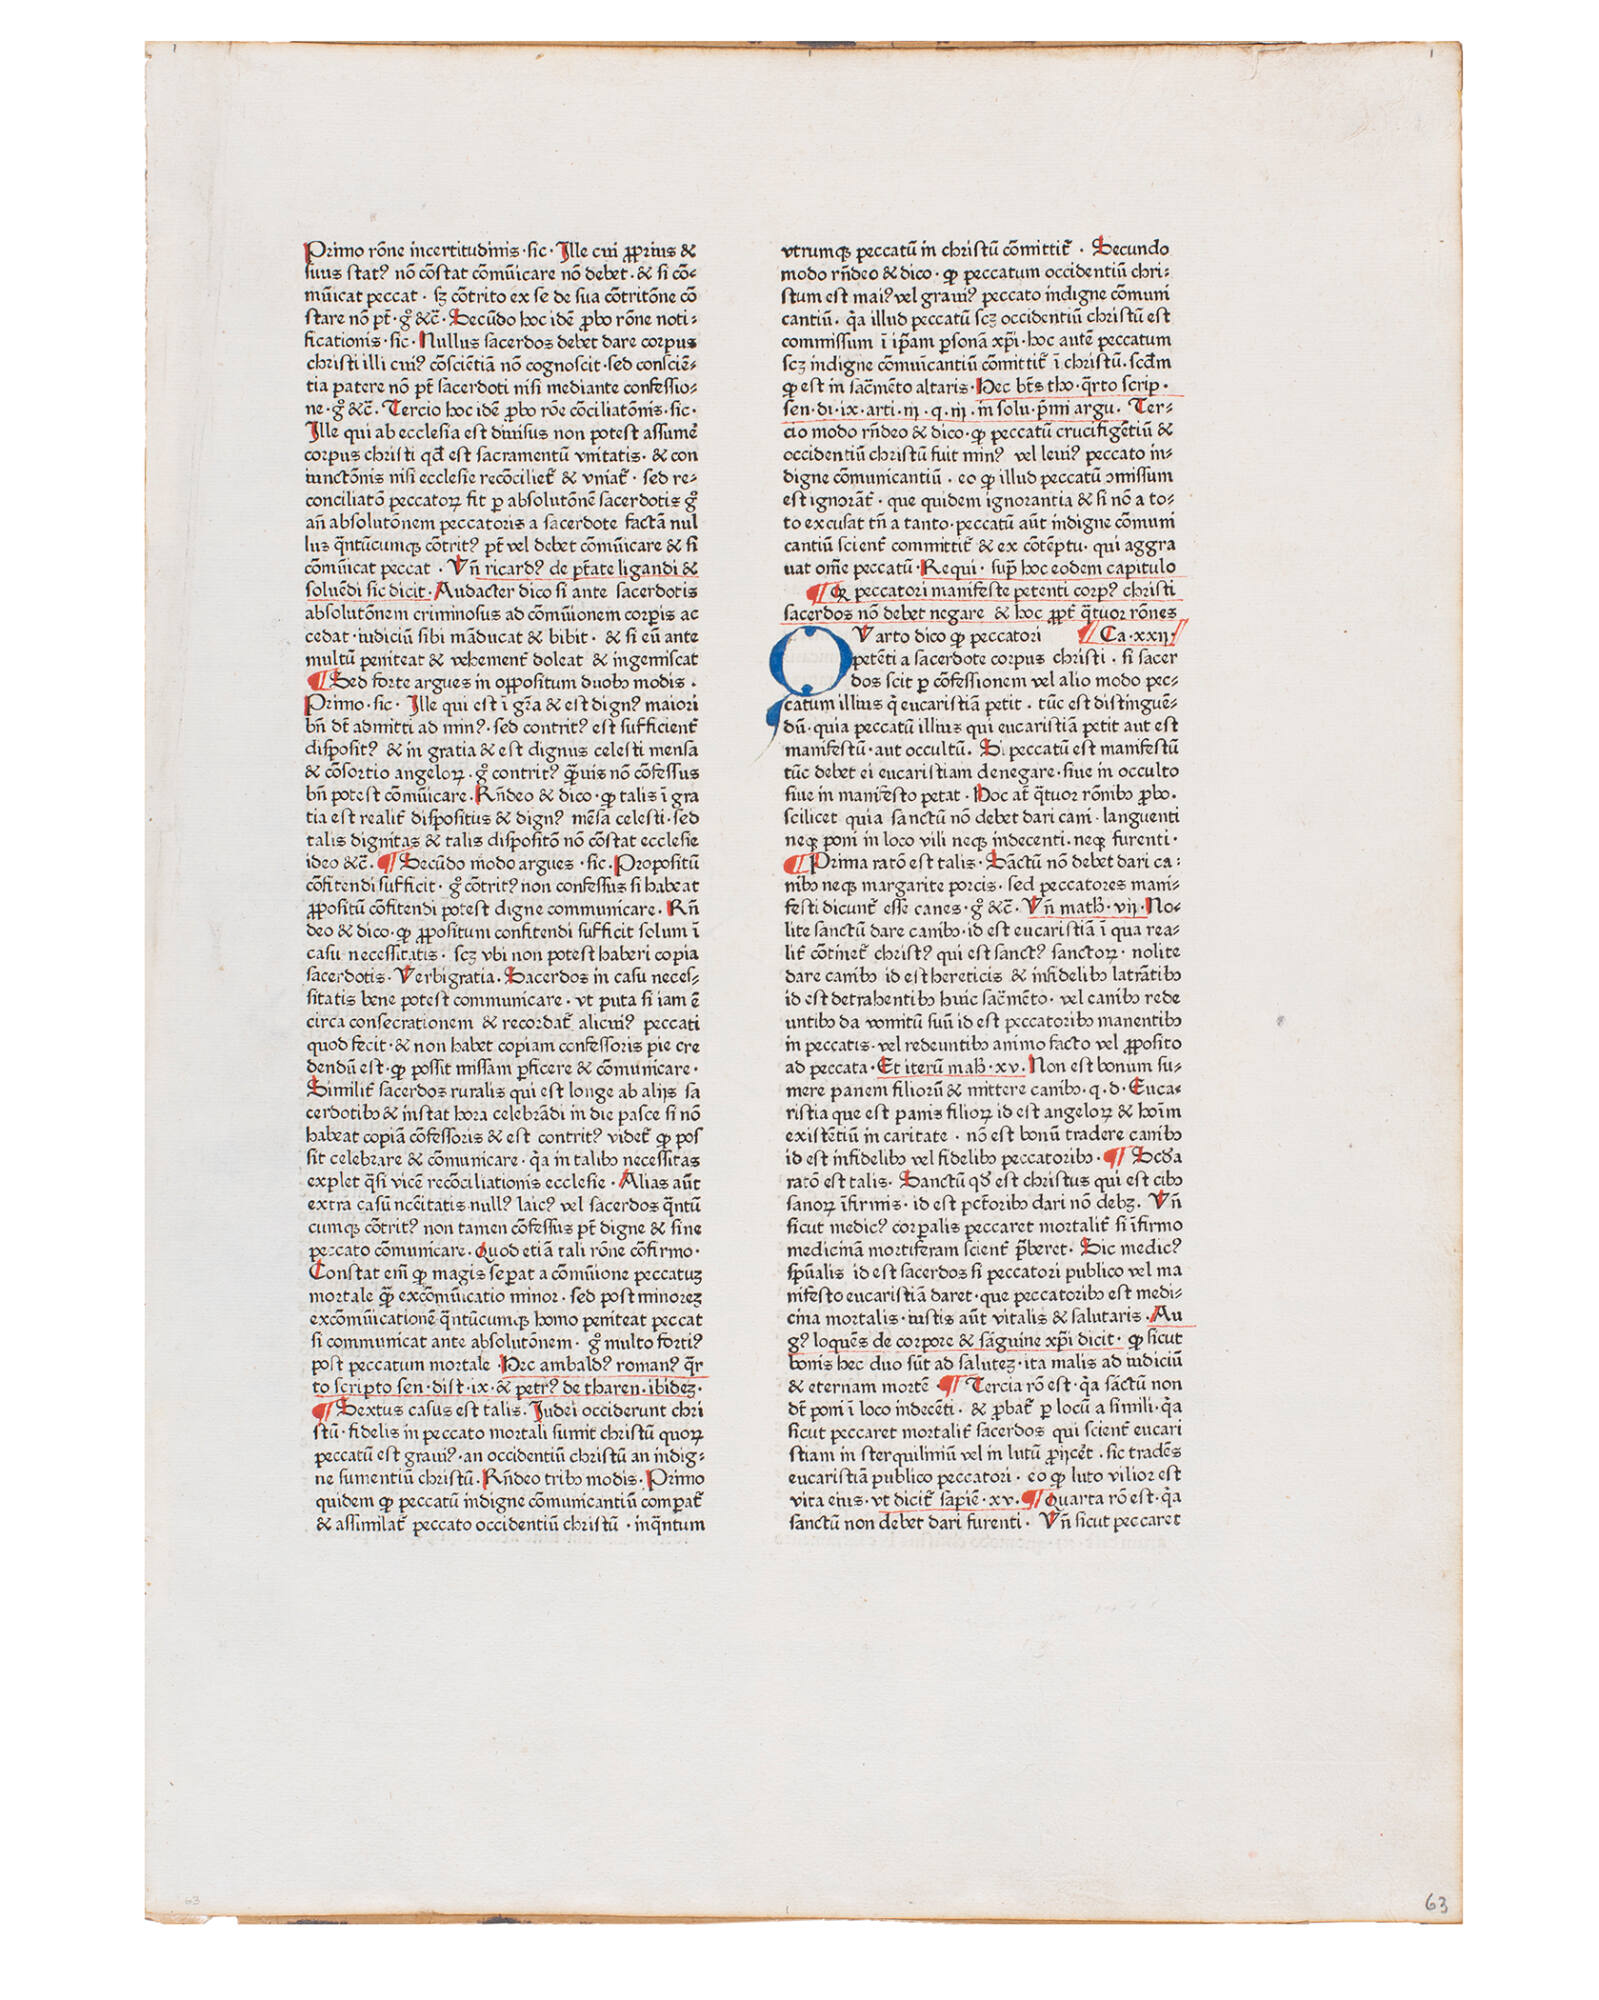 Primo rōne incertitudinis · sic · Ille cui ꝓprius &
suus statꝰ nō cōstat cōmūicare nō debet · & si cō⸗
mūicat peccat · sꝫ cōtrito ex se de sua cōtritōne cō
stare nō pt̄ · gͦ &c̄ · Secūdo hoc idē ꝓbo rōne noti⸗
ficationis · sic · Nullus sacerdos debet dare corpus
christi illi cuiꝰ cōsciētiā nō cognoscit · sed consciē⸗
tia patere nō pt̄ sacerdoti nisi mediante confessio⸗
ne · gͦ &c̄ . Tercio hoc idē ꝓbo rōe cōciliatōnis · sic ·
Ille qui ab ecclesia est diuisus non potest assume᷑
corpus christi qd̄ est sacramentū vnitatis · & con
iunctōnis nisi ecclesie recōciliet᷑ & vniat᷑ · sed re⸗
conciliatō peccatoꝝ fit ꝑ absolutōnē sacerdotis gͦ
an̄ absolutōnem peccatoris a sacerdote factā nul
lus q̄ntūcumqꝫ cōtritꝰ pt̄ vel debet cōmūicare & si
cōmūicat peccat · Vn̄ ricardꝰ de pt̄ate ligandi &
soluēdi sic dicit · Audacter dico si ante sacerdotis
absolutōnem criminosus ad cōmūionem corpis ac
cedat · iudiciū sibi māducat & bibit · & si eū ante
multū peniteat & vehement᷑ doleat & ingemiscat
¶ Sed forte argues in oppositum duobꝫ modis .
Primo · sic · Ille qui est ī gr̄a & est dignꝰ maiori
bn̄ dt̄ admitti ad minꝰ · sed contritꝰ est sufficient᷑
dispositꝰ & in gratia & est dignus celesti mensa
& cōsortio angeloꝝ · gͦ contritꝰ q̄uis nō cōfessus
bn̄ potest cōmūicare . Rn̄deo & dico · ꝙ talis ī gra
tia est realit᷑ dispositus & dignꝰ mēsa celesti · sed
talis dignitas & talis dispositō nō cōstat ecclesie
ideo &c̄ . ¶ Secūdo modo argues · sic · Propositū
cōfitendi sufficit · gͦ cōtritꝰ non confessus si habeat
ꝓpositū cōfitendi potest digne communicare . Rn̄
deo & dico · ꝙ ꝓpositum confitendi sufficit solum ī
casu necessitatis · scꝫ vbi non potest haberi copia
sacerdotis · Verbigratia . Sacerdos in casu neces⸗
sitatis bene potest communicare · vt puta si iam ē
circa consecrationem & recordat᷑ alicuiꝰ peccati
quod fecit · & non habet copiam confessoris pie cre
dendū est · ꝙ possit missam ꝑficere & cōmunicare ·
Similit᷑ sacerdos ruralis qui est longe ab alijs sa
cerdotibꝫ & instat hora celebrādi in die pasce si nō
habeat copiā cōfessoris & est contritꝰ videt᷑ ꝙ pos
sit celebrare & cōmunicare · q̄a in talibꝫ necessitas
explet q̄si vicē recōciliationis ecclesie · Alias aūt
extra casū nccītatis nullꝰ laicꝰ vel sacerdos q̄ntū
cumqꝫ cōtritꝰ non tamen cōfessus pt̄ digne & sine
peccato cōmunicare . Quod etiā tali rōne cōfirmo ·
Constat em̄ ꝙ magis sepat a cōmūione peccatuꝫ
mortale q̄ excōmūicatio minor · sed post minoreꝫ
excōmūicationē q̄ntūcumqꝫ homo peniteat peccat
si communicat ante absolutōnem · gͦ multo fortiꝰ
post peccatum mortale · Hec ambaldꝰ romanꝰ q̄r
to scripto sen · dist · ix · & petrꝰ de tharen . ibideꝫ ·
¶ Sextus casus est talis . Iudei occiderunt chri
stū · fidelis in peccato mortali sumit christū quoꝝ
peccatū est grauiꝰ · an occidentiū christū an indig⸗
ne sumentiū christū . Rn̄deo tribꝫ modis · Primo
quidem ꝙ peccatū indigne cōmunicantiū compat᷑
& assimilat᷑ peccato occidentiū christū · inq̄ntum
vtrumqꝫ peccatū in christū cōmittit᷑ · Secundo
modo rn̄deo & dico · ꝙ peccatum occidentiū chri⸗
stum est maiꝰ vel grauiꝰ peccato indigne cōmuni
cantiū . q̄a illud peccatū scꝫ occidentiū christū est
commissum ī ip̄am ꝑsonā xp̄i · hoc autē peccatum
scꝫ indigne cōmunicantiū cōmittit᷑ ī christū . scd̄m
ꝙ est in sac̄mēto altaris · Hec bt̄s tho · q̄rto scrip ·
sen · di · ix · arti · iij · q · iij · in solu · p̄mi argu · Ter⸗
cio modo rn̄deo & dico · ꝙ peccatū crucifigētiū &
occidentiū christū fuit minꝰ vel leuiꝰ peccato in⸗
digne cōmunicantiū . eo ꝙ illud peccatū ↄmissum
est ignorāt᷑ · que quidem ignorantia & si nō a to⸗
to excusat tn̄ a tanto · peccatū aūt indigne cōmuni
cantiū scient᷑ committit᷑ & ex cōtēptu · qui aggra
uat om̄e peccatū . Requi · sup̄ hoc eodem capitulo
¶ Qr̄ peccatori manifeste petenti corpꝰ christi
sacerdos nō debet negare & hoc ꝓpt᷑ q̄tuor rōnes
QVarto dico ꝙ peccatori ¶ Ca · xxij ·
petēti a sacerdote corpus christi · si sacer
dos scit ꝑ cōfessionem vel alio modo pec⸗
catum illius q̄ eucaristiā petit · tūc est distinguē⸗
dū · quia peccatū illius qui eucaristiā petit aut est
manifestū · aut occultū . Si peccatū est manifestū
tūc debet ei eucaristiam denegare · siue in occulto
siue in manifesto petat · Hoc at̄ q̄tuor rōnibꝫ ꝓbo .
scilicet quia sanctū nō debet dari cani · languenti
neqꝫ poni in loco vili neqꝫ indecenti · neqꝫ furenti ·
¶ Prima ratō est talis · Sāctū nō debet dari ca⸗
nibꝫ neqꝫ margarite porcis · sed peccatores mani⸗
festi dicunt᷑ esse canes · gͦ &c̄ . Vn̄ math · vij · No⸗
lite sanctū dare canibꝫ · id est eucaristiā ī qua rea⸗
lit᷑ cōtinet᷑ christꝰ qui est sanctꝰ sanctoꝝ · nolite
dare canibꝫ id est hereticis & infidelibꝫ latrātibꝫ
id est detrahentibꝫ huic sac̄mēto · vel canibꝫ rede
untibꝫ da vomitū suū id est peccatoribꝫ manentibꝫ
in peccatis · vel redeuntibꝫ animo facto vel ꝓposito
ad peccata · Et iterū math · xv · Non est bonum su⸗
mere panem filiorū & mittere canibꝫ · q · d · Euca⸗
ristia que est panis filioꝝ id est angeloꝝ & hoīm
existētiū in caritate · nō est bonū tradere canibꝫ
id est infidelibꝫ vel fidelibꝫ peccatoribꝫ · ¶ Scd̄a
ratō est talis · Sanctū qd̄ est christus qui est cibꝫ
sanoꝝ īfirmis · id est pctōribꝫ dari nō debꝫ · Vn̄
sicut medicꝰ corpalis peccaret mortalit᷑ si īfirmo
medicinā mortiferam scient᷑ p̄beret · Sic medicꝰ
sp̄ualis id est sacerdos si peccatori publico vel ma
nifesto eucaristiā daret · que peccatoribꝫ est medi⸗
cina mortalis · iustis aūt vitalis & salutaris · Au
gꝰ loquēs de corpore & sāguine xp̄i dicit · ꝙ sicut
bonis hec duo sūt ad saluteꝫ · ita malis ad iudiciū
& eternam mortē · ¶ Tercia rō est · q̄a sāctū non
dt̄ poni ī loco indecēti · & ꝓbat᷑ ꝑ locū a simili · q̄a
sicut peccaret mortalit᷑ sacerdos qui scient᷑ eucari
stiam in sterquiliniū vel in lutū ꝓijcēt · sic tradēs
eucaristiā publico peccatori · eo ꝙ luto vilior est
vita eius · vt dicit᷑ sapiē · xv · ¶ Quarta rō est · q̄a
sanctū non debet dari furenti · Vn̄ sicut peccaret
63
63